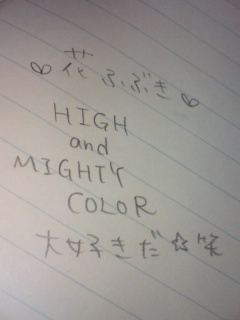 ♡花ふぶき♡
HIGH
and
MIGHTY
COLOR
大好きだ☆笑